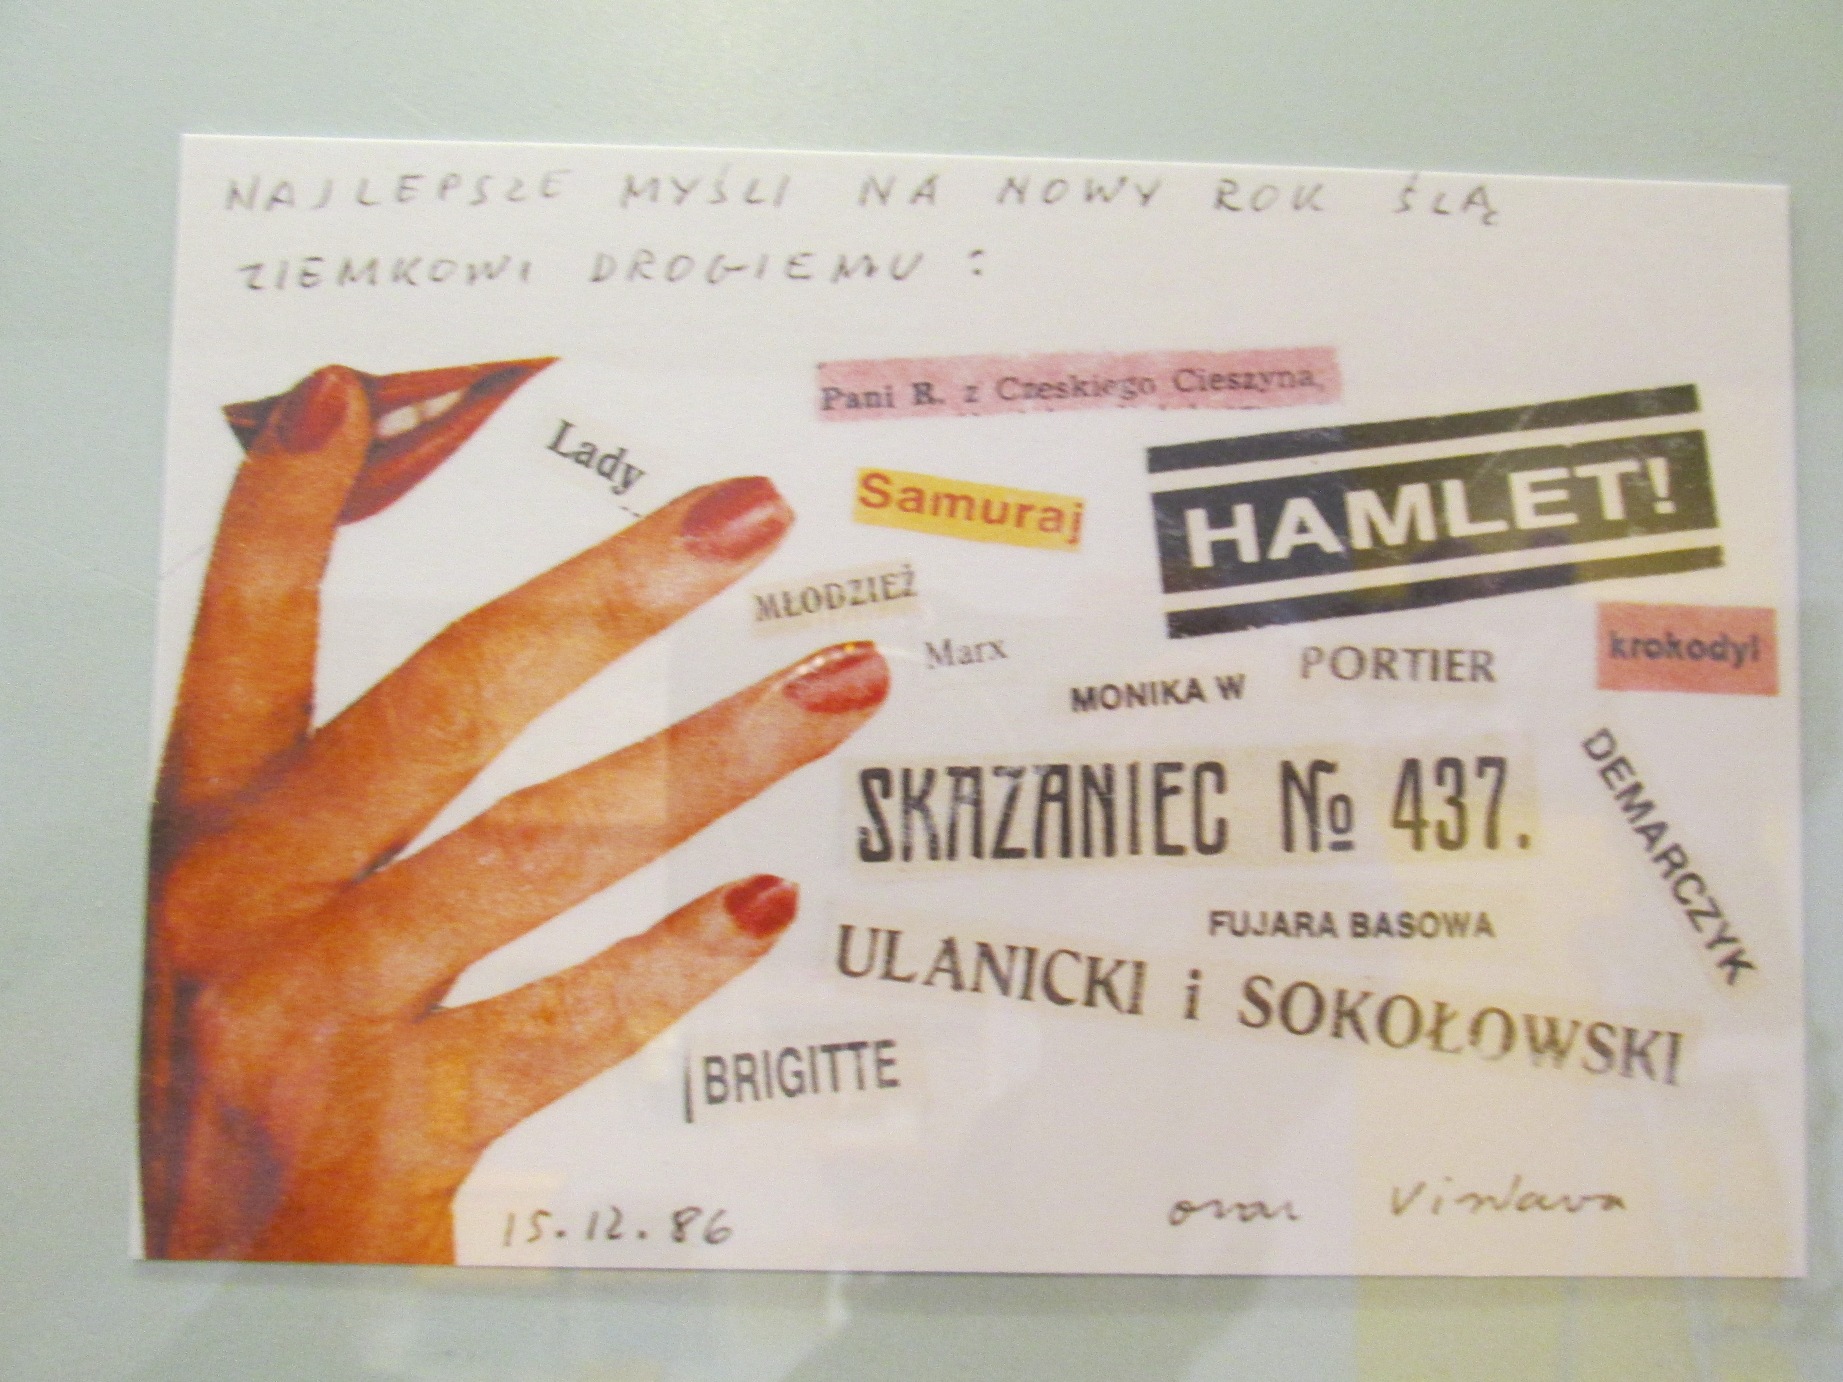 NAJLEPSZE MYŚLI NA NOWY ROK ŚLĄ
ZIEMKOWI DROGIEMU :
Pani R. z Czeskiego Cieszyna,
Lady
Samuraj
HAMLET!
MŁODZIEŻ
Marx
MONIKA W
PORTIER
krokodyl
SKAZANIEC No 437.
DEMARCZYK
FUJARA BASOWA
ULANICKI i SOKOŁOWSKI
BRIGITTE
15.12.86
oraz Wisława